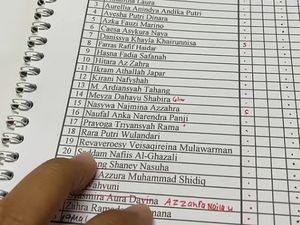 3 Aurellia Anindya Andika Putri
4 Ayesha Putri Dinara
5 Azka Fauzi Marino
6 Caesa Asykura Naya
7 Danissya Khayla Khairunnisa
8 Farras Rafif Haidar s
9 Hasna Fadia Safanah
10 Hitara Az Zahra
11 Ikram Athallah Japar
12 Kirani Nafyshah
13 M. Ardiansyah Tahang
14 Meyza Dahayu Shabira
15 Nasywa Najmina Azzahra s
16 Naufal Anka Narendra Panji
17 Pravoga Trivansyah Rama
18 Rara Putri Wulandari
19 Revaveroesy Veisaqireina Mulawarman
20 Saddam Nafiis Al-Ghazali
Shaney Nasuha
Azzura Muhammad Shidiq
Wahyuni
Aura Davina
Zahra